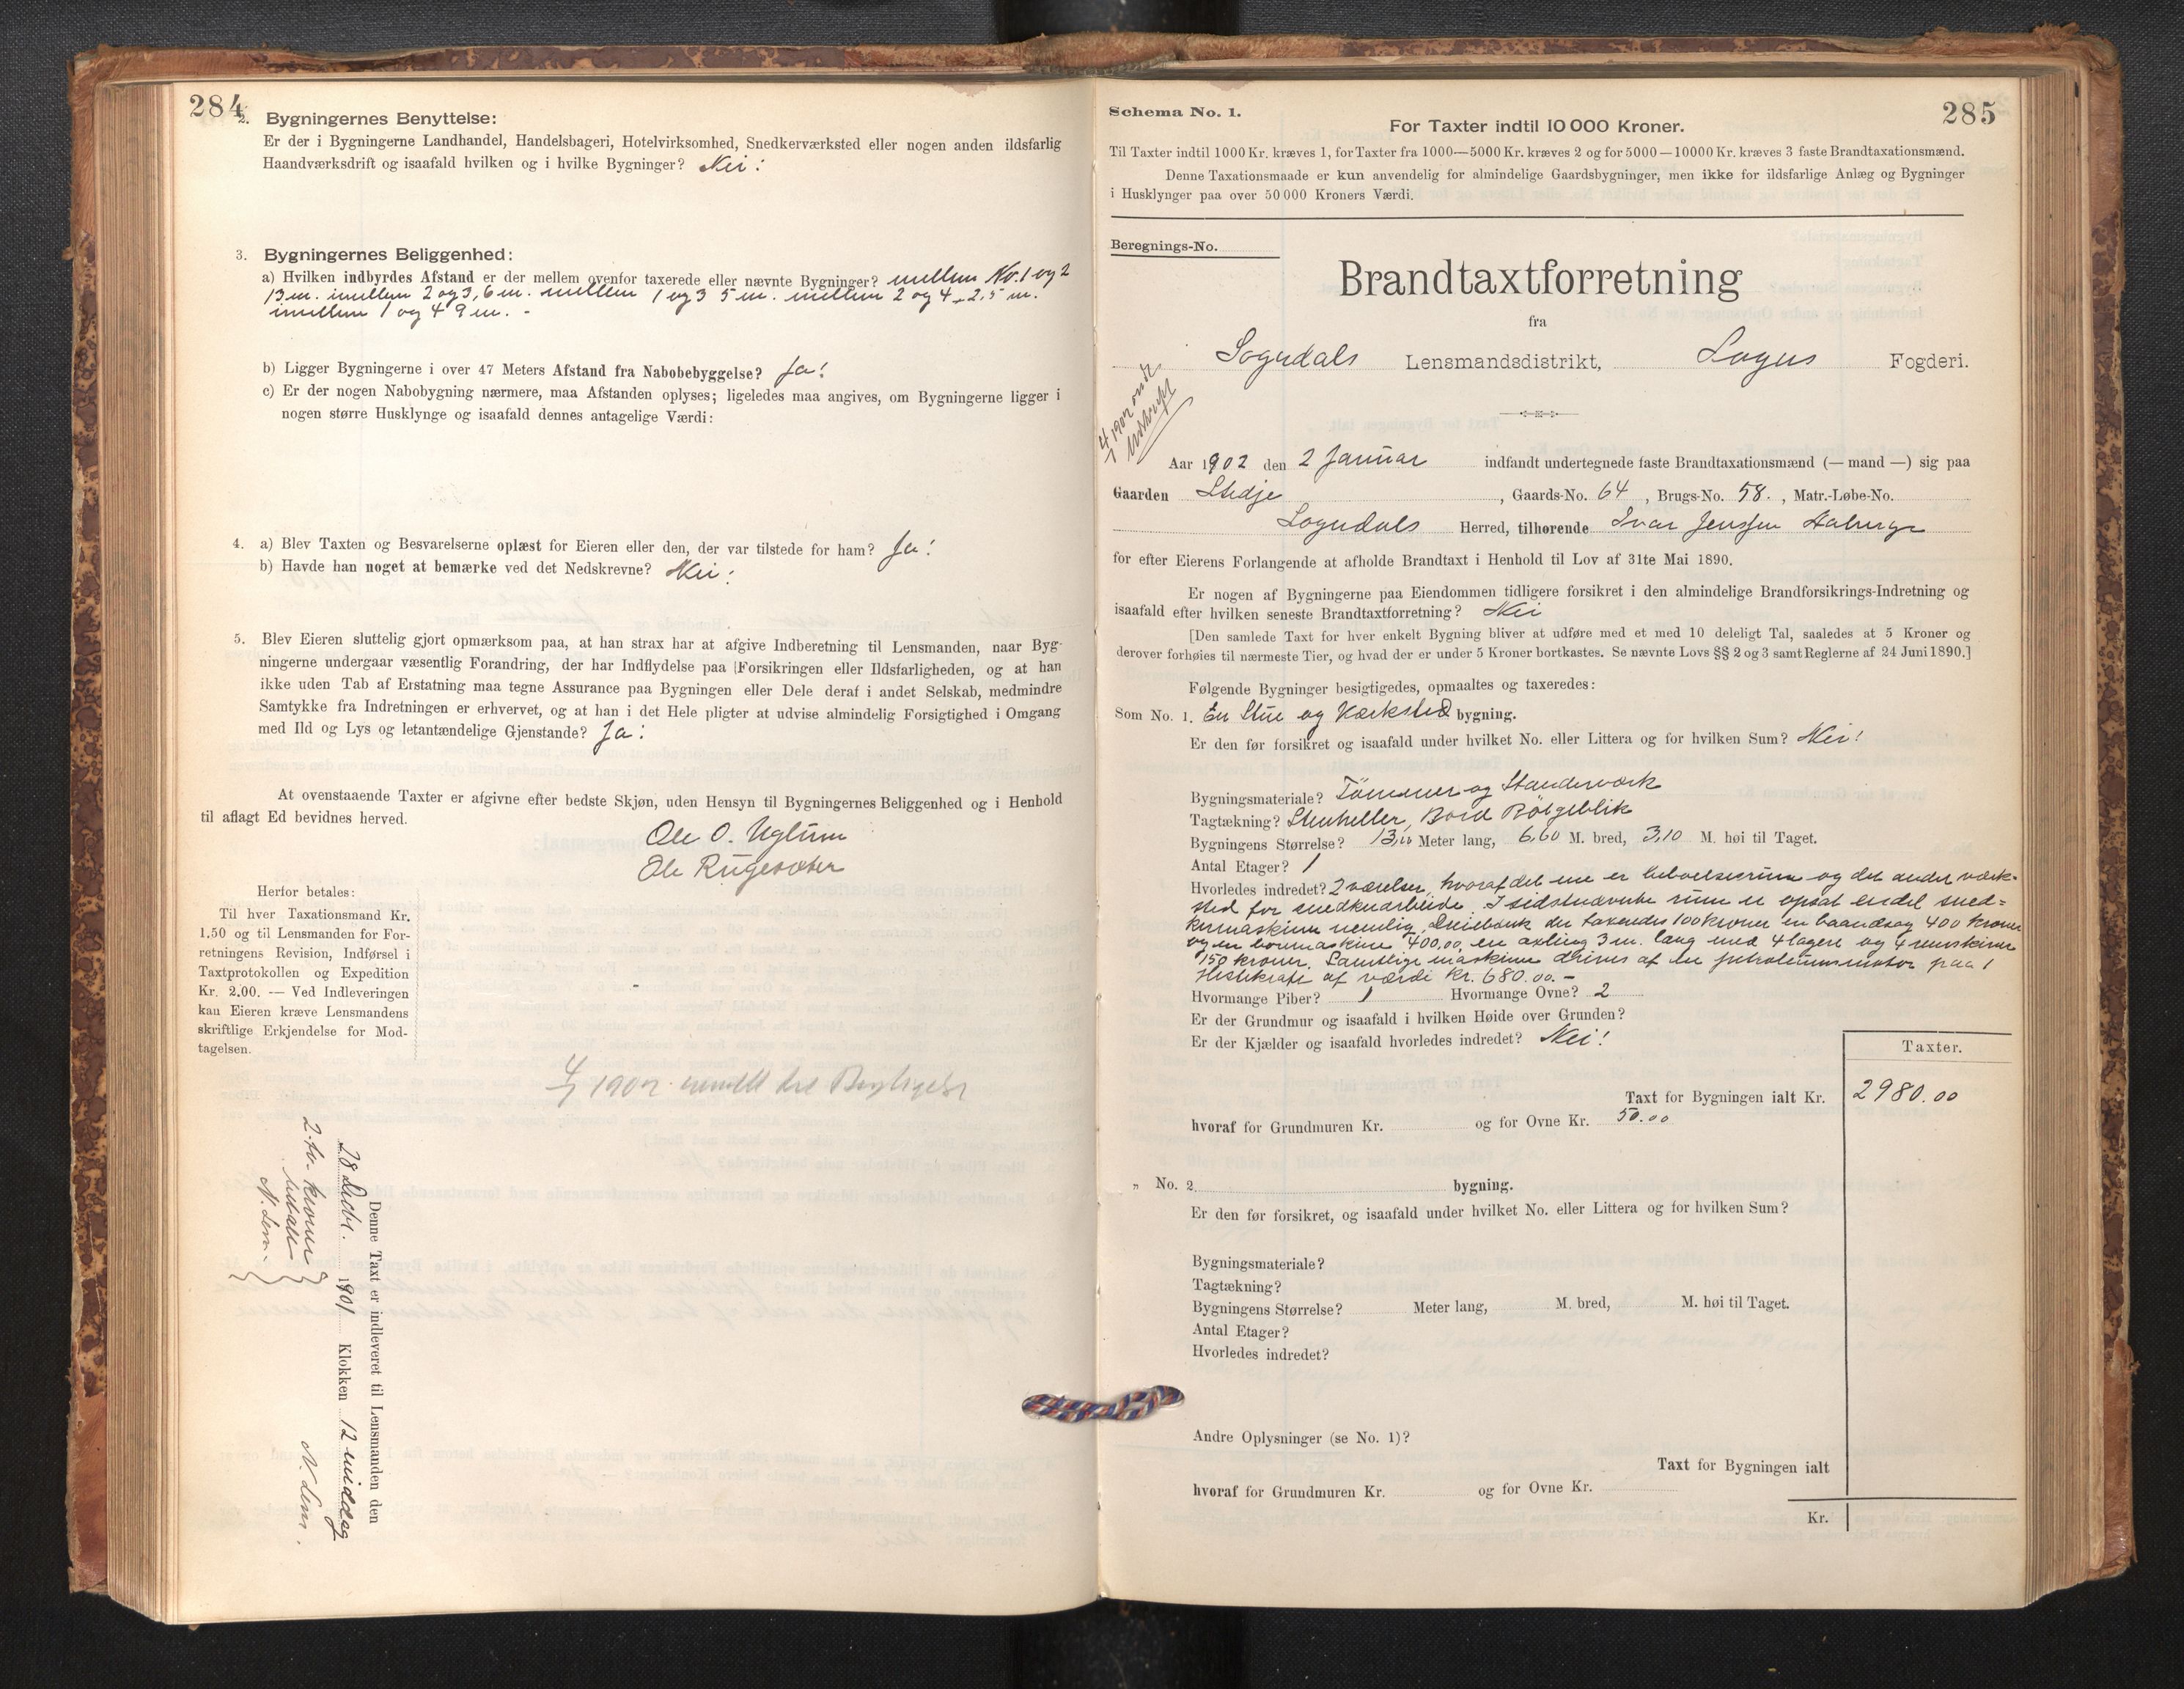 284
2. Bygningernes Benyttelse:
Er der i Bygningerne Landhandel, Handelsbageri, Hotelvirksomhed, Snedkerværksted eller nogen anden ildsfarlig
Haandværksdrift og isaafald hvilken og i hvilke Bygninger? Nei!
3. Bygningernes Beliggenhed:
a) Hvilken indbyrdes Afstand er der mellem ovenfor taxerede eller nævnte Bygninger? mellem No. 1 og 2
13 m. imellem 2 og 3, 6 m. mellem 1 og 3 5 m. mellem 2 og 4 2,5 m.
imellem 1 og 4 9 m. -
b) Ligger Bygningerne i over 47 Meters Afstand fra Nabobebyggelse? Ja!
c) Er der nogen Nabobygning nærmere, maa Afstanden oplyses; ligeledes maa angives, om Bygningerne ligger i
nogen større Husklynge og isaafald dennes antagelige Værdi:
4. a) Blev Taxten og Besvarelserne oplæst for Eieren eller den, der var tilstede for ham? Ja!
b) Havde han noget at bemærke ved det Nedskrevne? Nei!
5. Blev Eieren sluttelig gjort opmærksom paa, at han strax har at afgive Indberetning til Lensmanden, naar Byg-
ningerne undergaar væsentlig Forandring, der har Indflydelse paa Forsikringen eller Ildsfarligheden, og at han
ikke uden Tab af Erstatning maa tegne Assurance paa Bygningen eller Dele deraf i andet Selskab, medmindre
Samtykke fra Indretningen er erhvervet, og at han i det Hele pligter at udvise almindelig Forsigtighed i Omgang
med Ild og Lys og letantændelige Gjenstande? Ja!
At ovenstaaende Taxter er afgivne efter bedste Skjøn, uden Hensyn til Bygningernes Beliggenhed og i Henhold
til aflagt Ed bevidnes herved.
Ole O. Uglum
Ole Rugesæter
Herfor betales:
Til hver Taxationsmand Kr.
1,50 og til Lensmanden for For-
retningens Revision, Indførsel i
Taxtprotokollen og Expedition
Kr. 2.00. — Ved Indleveringen
kan Eieren kræve Lensmandens
skriftlige Erkjendelse for Mod-
tagelsen.
1902
Denne Taxt er indleveret til Lensmanden den
28 Decbr. 1901 Klokken 12 middag
N. Lem.
2. to. kroner
betalt
N. Lem.
285
Schema No. 1.
For Taxter indtil 10 000 Kroner.
Til Taxter indtil 1000 Kr. kræves 1, for Taxter fra 1000—5000 Kr. kræves 2 og for 5000—10000 Kr. kræves 3 faste Brandtaxationsmænd.
Denne Taxationsmaade er kun anvendelig for almindelige Gaardsbygninger, men ikke for ildsfarlige Anlæg og Bygninger
i Husklynger paa over 50 000 Kroners Værdi.
Beregnings-No.
Brandtaxtforretning
fra
Sogndals Lensmandsdistrikt, Sogns Fogderi.
1902
Aar 1902 den 2 Januar indfandt undertegnede faste Brandtaxationsmænd (— mand —) sig paa
Gaarden Stedje, Gaards-No. 64, Brugs-No. 58., Matr.-Løbe-No.
Sogndals Herred, tilhørende Ivar Jenssen Aaberge
for efter Eierens Forlangende at afholde Brandtaxt i Henhold til Lov af 31te Mai 1890.
Er nogen af Bygningerne paa Eiendommen tidligere forsikret i den almindelige Brandforsikrings-Indretning og
isaafald efter hvilken seneste Brandtaxtforretning? Nei
[Den samlede Taxt for hver enkelt Bygning bliver at udføre med et med 10 deleligt Tal, saaledes at 5 Kroner og
derover forhøies til nærmeste Tier, og hvad der er under 5 Kroner bortkastes. Se nævnte Lovs §§ 2 og 3 samt Reglerne af 24 Juni 1890.]
Følgende Bygninger besigtigedes, opmaaltes og taxeredes:
Som No. 1. En Stue og Værksted bygning.
Er den før forsikret og isaafald under hvilket No. eller Littera og for hvilken Sum? Nei!
Bygningsmateriale? Tømmer og Standerværk
Tagtækning? Stenheller, Bord Bølgeblik
Bygningens Størrelse? 13, Meter lang, 6,60 M. bred, 3,10 M. høi til Taget.
Antal Etager? 1
Hvorledes indredet? 2 værelser, hvoraf det ene er beboelsesrum og det andet værk-
sted for snedkerarbeide. I sidstnævnte rum er opsat endel sned-
kermaskiner nemlig, Dreiebænk der taxeredes 100 kroner en baandsag 400 kroner
og en boremaskine 400,00, en axling 3 m. lang med 4 lagere og 4 remskiver
150 kroner. Samtlige maskiner drives af en petroleumsmotor paa 1
Hestekraft af værdi Kr. 680.00. -
Hvormange Piber? 1 Hvormange Ovne? 2
Er der Grundmur og isaafald i hvilken Høide over Grunden?
Er der Kjælder og isaafald hvorledes indredet? Nei!
Taxter.
Taxt for Bygningen ialt Kr. 2980.00
hvoraf for Grundmuren Kr. og for Ovne Kr. 50.00
„ No. 2 bygning.
Er den før forsikret, og isaafald under hvilket No. eller Littera og for hvilken Sum?
Bygningsmateriale?
Tagtækning?
Bygningens Størrelse? Meter lang, M. bred, M. høi til Taget.
Antal Etager?
Hvorledes indredet?
Andre Oplysninger (se No. 1)?
Taxt for Bygningen ialt
hvoraf for Grundmuren Kr. og for Ovne Kr.
Kr.